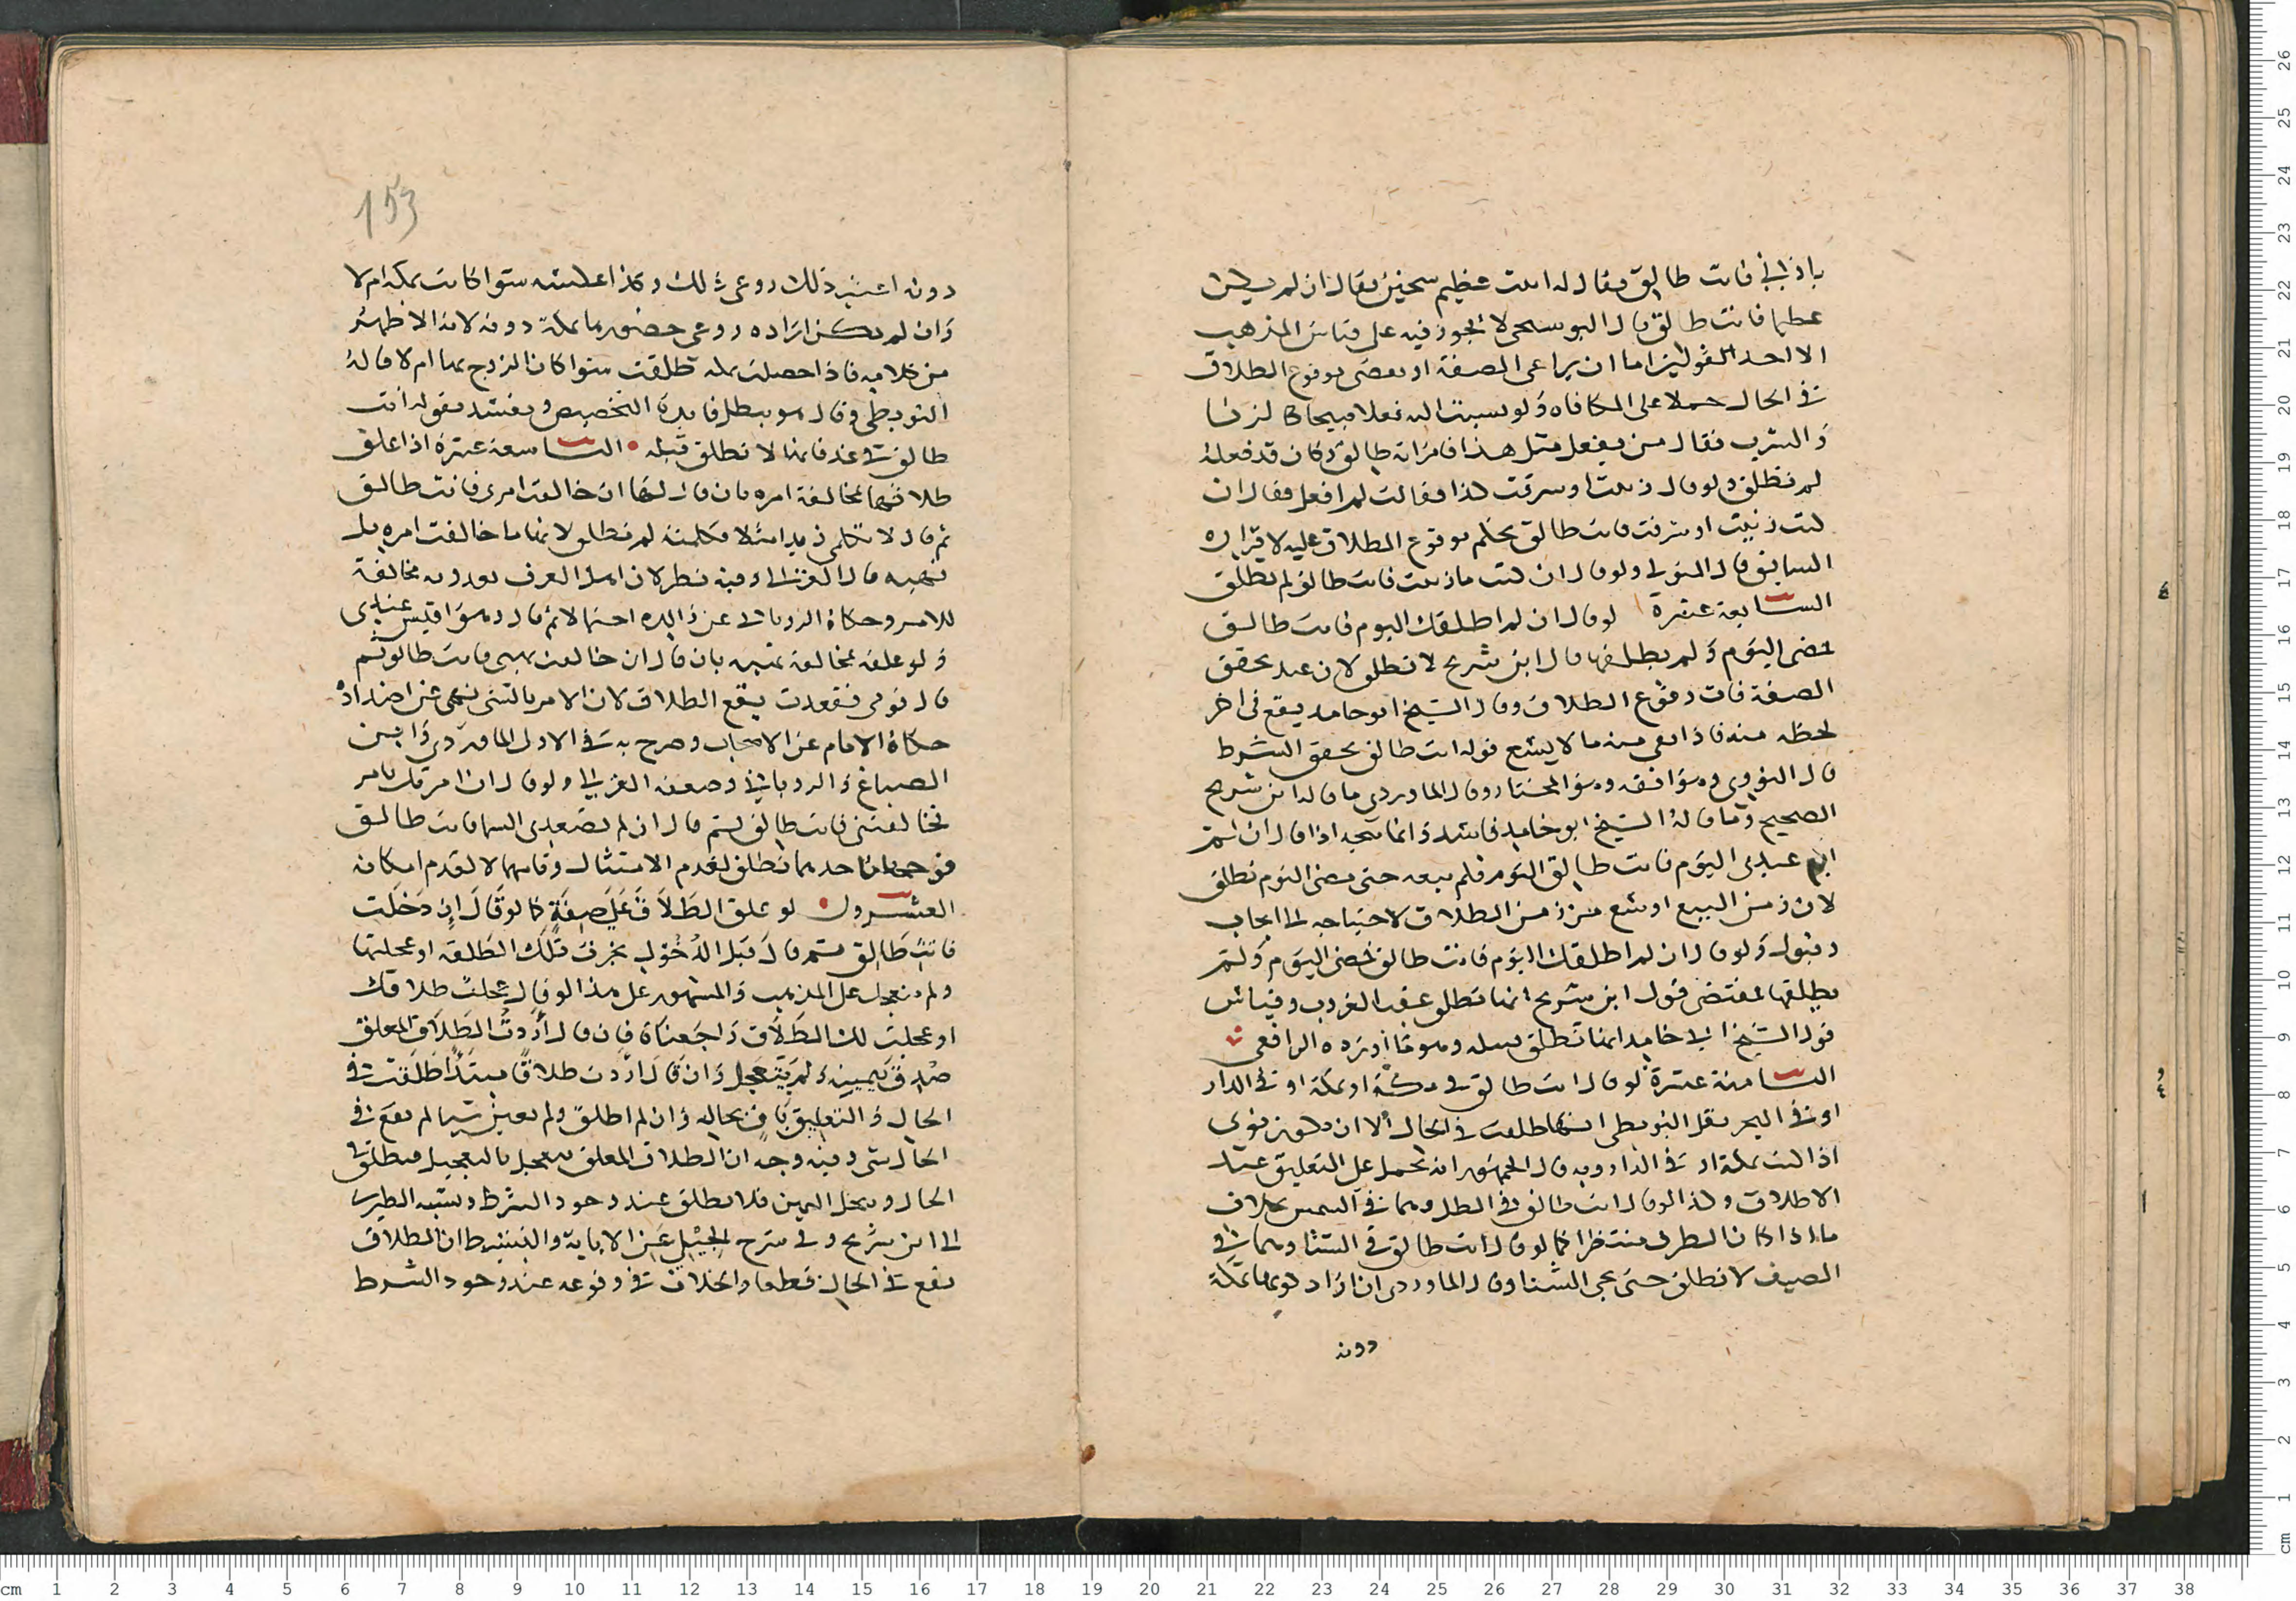 باذاني فانت طالق فقال له انت عظيم سخين فقال ان لم يكن
عظيما فانت طالق قال البوسنجي لا يجوز فيه على قياس المذهب
الا احد القولين اما ان يراعى الصفة او يقضى بوقوع الطلاق
في الحال حملا على المكافاه ولو نسبت اليه فعلا قبيحا كالزنا
والشرب فقال من يفعل مثل هذا فامراته طالق وكان قد فعله
لم تطلق ولو قال زنيت او سرقت كذا فقالت لم افعل فقال ان
كنت زنيت او سرقت فانت طالق يحكم بوقوع الطلاق عليه لاقراره
السابق قال المتولي ولو قال ان كنت ما زنيت فانت طالق لم تطلق
السابعة عشرة لو قال ان لم اطلقك اليوم فانت طالق
فمضى اليوم ولم يطلقها قال ابن شريح لا تطلق لان عند تحقق
الصفة فات وقوع الطلاق وقال الشيخ ابو حامد يقع في اخر
لحظة منه فاذا بقي منه ما لا يسع قوله انت طالق تحقق الشرط
قال النووي وهو افقه وهو المختار وقال الماوردي ما قاله ابن شريح
الصحيح وما قاله الشيخ ابو حامد فاسد وانما يتجه اذا قال ان لم
ابع عبدي اليوم فانت طالق اليوم فلم يبعه حتى مضى اليوم تطلق
لان زمن البيع اوسع من زمن الطلاق لاحتياجه الى ايجاب
وقبول ولو قال ان لم اطلقك اليوم فانت طالق فمضى اليوم ولم
يطلقها فمقتضى قول ابن شريح انها تطلق عقب الغروب وقياس
قول الشيخ ابي حامد انها تطلق قبيله وهو ما اورده الرافعي
الثامنة عشرة لو قال انت طالق في مكة او بمكة او في الدار
او في البحر نقل البويطي انها طلقت في الحال الا ان يكون نوى
اذا كنت بمكة او في الدار وبه قال الجمهور انه يحمل على التعليق عند
الاطلاق وكذا لو قال انت طالق في الظل وهما في الشمس بخلاف
ما اذا كان الظرف منتظرا كما لو قال انت طالق في الشتا وهما في
الصيف لا تطلق حتى يجي الشتا وقال الماوردي ان اراد كونها بمكة
دونه
153
دونه اعتبر ذلك روعي ذلك وكذا عكسه سوا كانت بمكة ام لا
وان لم يكن اراده روعي حضورها بمكة دونه لانه الاظهر
من كلامه فاذا حصلت بمكة تطلقت سوا كان الزوج بها ام لا قاله
البويطي وقال هو يبطل فايدة التخصيص ويفسد بقوله انت
طالق في غد فانها لا تطلق قبله • التاسعة عشرة اذا علق
طلاقها بمخالفة امره بان قال لها ان خالفت امري فانت طالق
ثم قال لا تكلمي زيدا مثلا فكلمته لم تطلق لانها ما خالفت امره بل
نهيه قال الغزالي وفيه نظر لان اهل العرف يعدونه مخالفة
للامر وحكاه الروياني عن والده احتمالا ثم قال وهو اقيس عندي
ولو علقه بمخالفة نهيه بان قال ان خالفت نهيي فانت طالق ثم
قال قومي فقعدت يقع الطلاق لان الامر بالشي نهي عن اضداده
حكاه الامام عن الاصحاب وصرح به في الاول الماوردي وابن
الصباغ والروياني وضعفه الغزالي ولو قال ان امرتك بامر
فخالفتني فانت طالق ثم قال ان لم تصعدي السما فانت طالق
فوجهان احدهما تطلق لعدم الامتثال وثانيهما لا لعدم امكانه
العشرون • لو علق الطلاق على صفة كما لو قال ان دخلت
فانت طالق ثم قال قبل الدخول نجزت تلك الطلقة او عجلتها
ولم تتعجل على المذهب والمشهور على هذا لو قال عجلت طلاقك
او عجلت لك الطلاق راجعناه فان قال اردت الطلاق المعلق
صدق بيمينه ولم يتعجل وان قال اردت طلاقا مبتدا طلقت في
الحال والتعليق باق بحاله وان لم اطلق ولم يعين شيا لم يقع في
الحال شي وفيه وجه ان الطلاق المعلق يتعجل بالتعجيل فتطلق في
الحال وتنحل اليمين فلا تطلق عند وجود الشرط ونسبه الطبري
الى ابن شريح وفي شرح الجيلي عن الابانة والبسيط ان الطلاق
يقع في الحال قطعا والخلاف في وقوعه عند وجود الشرط